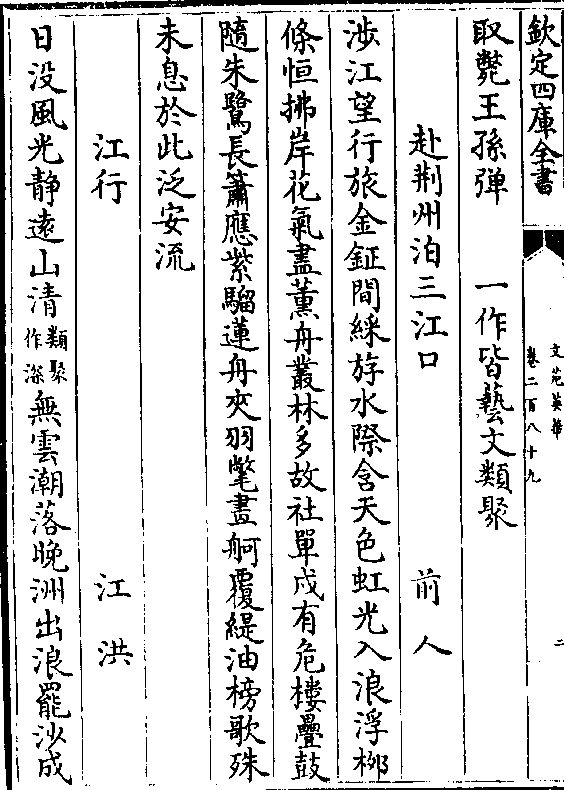 欽定四庫全書
文苑英華
卷二百八十九
二
取斃王孫弹　一作皆藝文類聚
赴荆州泊三江口　前人
渉江望行旅金鉦間綵斿水際含天色虹光入浪浮桞
條恒拂岸花氣盡薫舟叢林多故社單戍有危樓疊鼓
隨朱鷺長簫應紫騮蓮舟夾羽氅畫舸覆緹油榜歌殊
未息於此泛安流
江行　江洪
日没風光静遠山清類聚作深無雲潮落晩洲出浪罷沙成